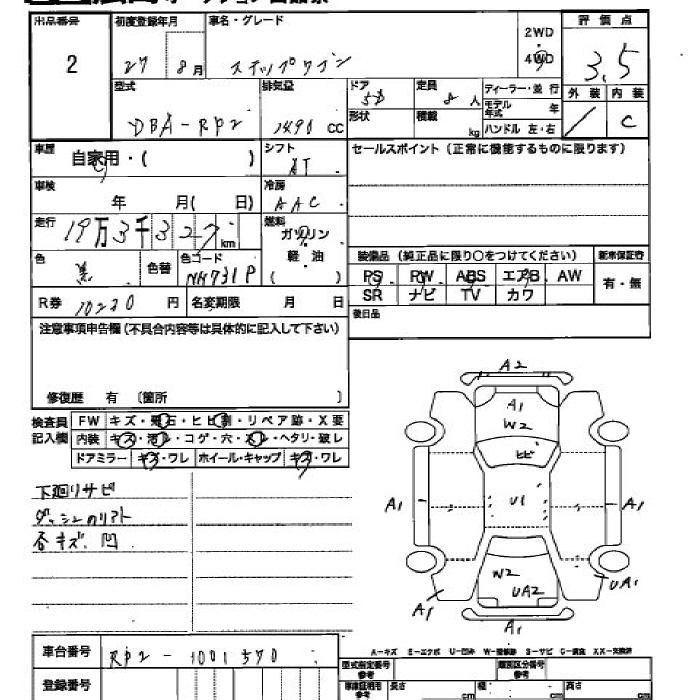 出品番号 初度登録年月 車名・グレード 2WD 評価点
2 27 8月 ステップワゴン 4WD 3.5
型式 排気量 ドア 定員 ディーラー・並行 外装 内装
DBA-RP2 1490 CC 5D 8人 モデル年式 年 / C
形状 積載 kg ハンドル 左・右
車歴 自家用・( ) シフト AT セールスポイント(正常に機能するものに限ります)
車検 年 月( 日) 冷房 AAC
走行 19万3千327km 燃料 ガソリン
色 黒 色替 色コード NH731P 軽油 ( )
装備品(純正品に限り○をつけてください) 新車保証書
PS PW ABS エアB AW 有・無
SR ナビ TV カワ
R券 10230 円 名変期限 月 日 後日品
注意事項申告欄(不具合内容等は具体的に記入して下さい)
修復歴 有 〔箇所 〕
検査員記入欄 FW キズ・飛石・ヒビ割・リペア跡・X要
内装 キズ・汚レ・コゲ・穴・スレ・ヘタリ・破レ
ドアミラー キズ・ワレ ホイール・キャップ キズ・ワレ
下廻りサビ
ダッシュのリフト
各キズ、凹
A2
A1
W2
ヒビ
A1 U1 A1
W2
UA2
UA1
A1
A1
車台番号 RP2-1001570
A-キズ E-エクボ U-凹み W-補修跡 S-サビ C-腐食 XX-交換済
登録番号
型式指定番号 参考 類別区分番号 参考
車庫証明用 参考 長さ cm 幅 cm 高さ cm